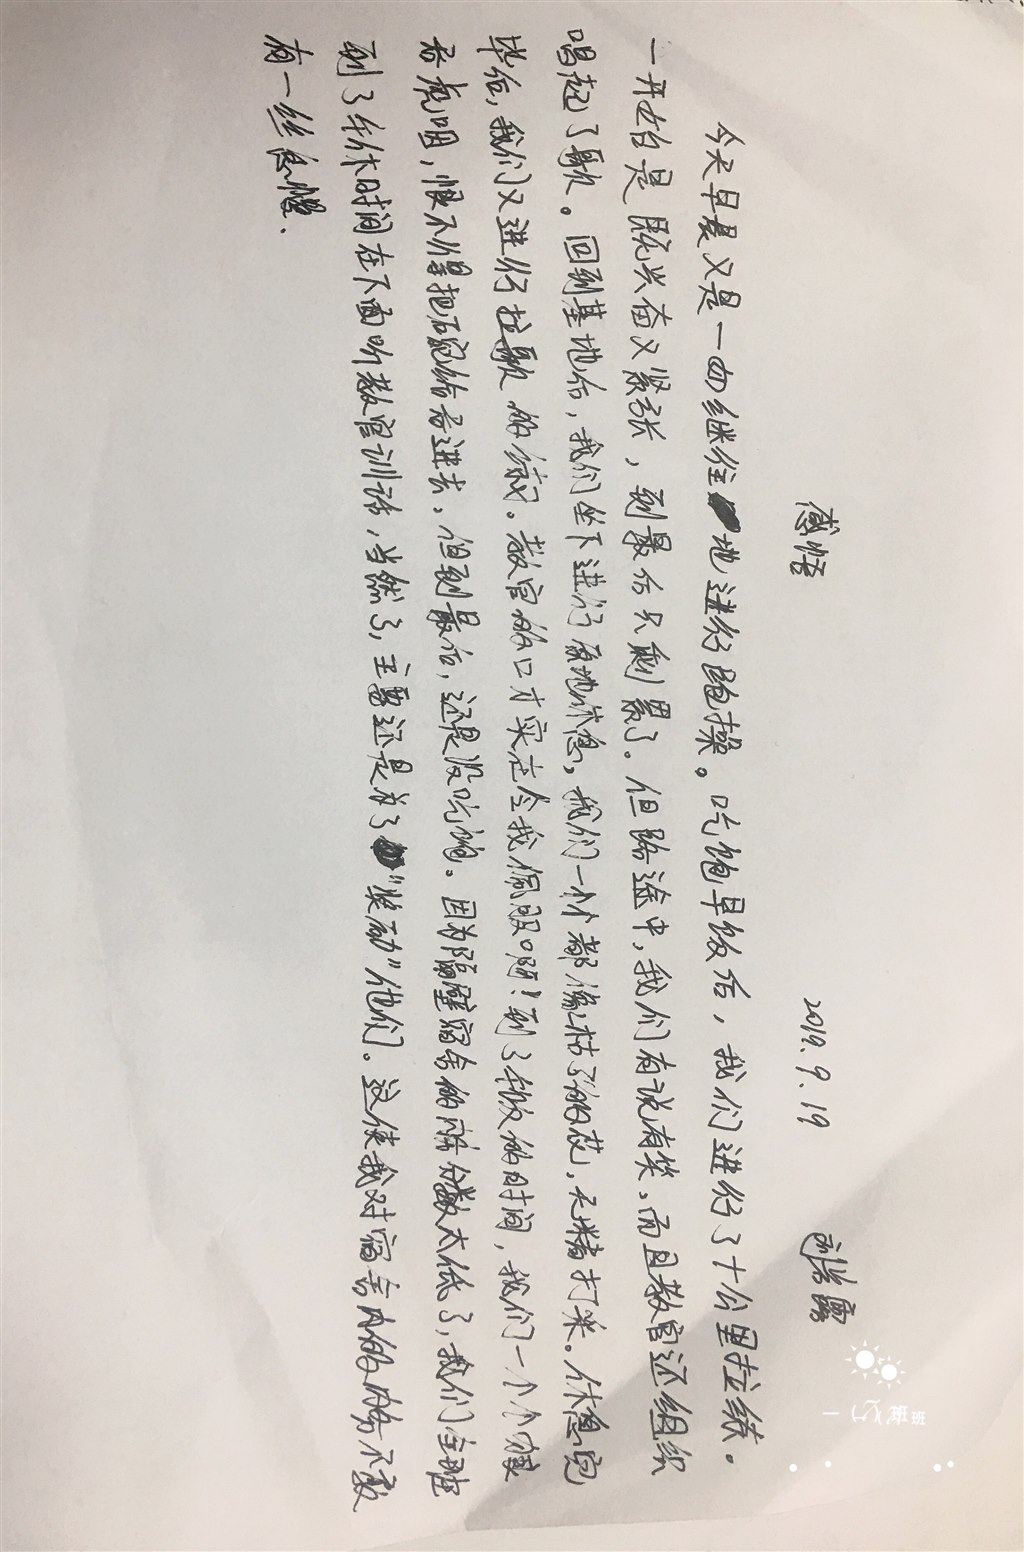 感悟
2019.9.19
今天早晨又是一如继往地进行跑操。吃饱早饭后，我们进行了十公里拉练。
一开始是既兴奋又紧张，到最后只剩累了。但路途中，我们有说有笑。而且教官还组织
唱起了歌。回到基地后，我们坐下进行原地休息，我们一个个都像枯了的苗，无精打采。休息完
毕后，我们又进行拉歌的练习。教官的口才实在令我佩服啊！到了午饭的时间，我们一个个狼
吞虎咽，恨不得把碗给吞进去。但到最后，还是没吃饱。因为隔壁宿舍的内务分数太低了，我们全班
到了午休时间在下面听教官训话，当然了，主要还是为了“奖励”他们。这使我对宿舍内的内务不敢
有一丝怠慢.
一 班班